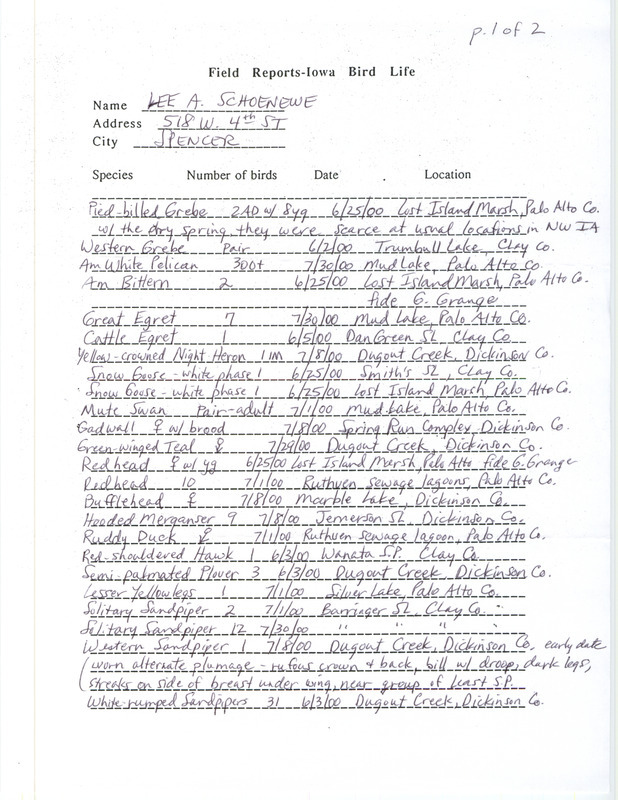 p. 1 of 2
Field Reports-Iowa Bird Life
Name LEE A. SCHOENEWE
Address 518 W. 4th ST
City SPENCER
Species Number of birds Date Location
Pied-billed Grebe 2AD w/ 8yg 6/25/00 Lost Island Marsh, Palo Alto Co.
w/ the dry spring they were scarce at usual locations in NW IA
Western Grebe Pair 6/2/00 Trumbull Lake, Clay Co.
Am White Pelican 300+ 7/30/00 Mud Lake, Palo Alto Co.
Am Bittern 2 6/25/00 Lost Island Marsh, Palo Alto Co.
fide G. Grange
Great Egret 7 7/30/00 Mud Lake, Palo Alto Co.
Cattle Egret 1 6/5/00 Dan Green SL Clay Co.
Yellow-crowned Night Heron 1 IM 7/8/00 Dugout Creek, Dickinson Co.
Snow Goose - white phase 1 6/25/00 Smith's SL, Clay Co.
Snow Goose - white phase 1 6/25/00 Lost Island Marsh, Palo Alto Co.
Mute Swan Pair-adult 7/1/00 Mud Lake, Palo Alto Co.
Gadwall ♀ w/ brood 7/8/00 Spring Run Complex, Dickinson Co.
Green-winged Teal ♀ 7/29/00 Dugout Creek, Dickinson Co.
Redhead ♀ w/ yg 6/25/00 Lost Island Marsh, Palo Alto fide G. Grange
Redhead 10 7/1/00 Ruthven sewage lagoons, Palo Alto Co.
Bufflehead ♀ 7/8/00 Marble Lake, Dickinson Co.
Hooded Merganser 9 7/8/00 Jemerson SL Dickinson Co.
Ruddy Duck 7/1/00 Ruthven sewage lagoon, Palo Alto Co.
Red-shouldered Hawk 1 6/3/00 Wanata S.P. Clay Co.
Semi-palmated Plover 3 6/3/00 Dugout Creek, Dickinson Co.
Lesser Yellowlegs 1 7/1/00 Silver Lake, Palo Alto Co.
Solitary Sandpiper 2 7/1/00 Barringer SL, Clay Co.
Solitary Sandpiper 12 7/30/00 " " " "
Western Sandpiper 1 7/8/00 Dugout Creek, Dickinson Co, early date
(worn alternate plumage - rufous crown & back, bill w/ droop, dark legs,
streaks on side of breast under wing, near group of Least S.P.
White-rumped Sandpipers 31 6/3/00 Dugout Creek, Dickinson Co.